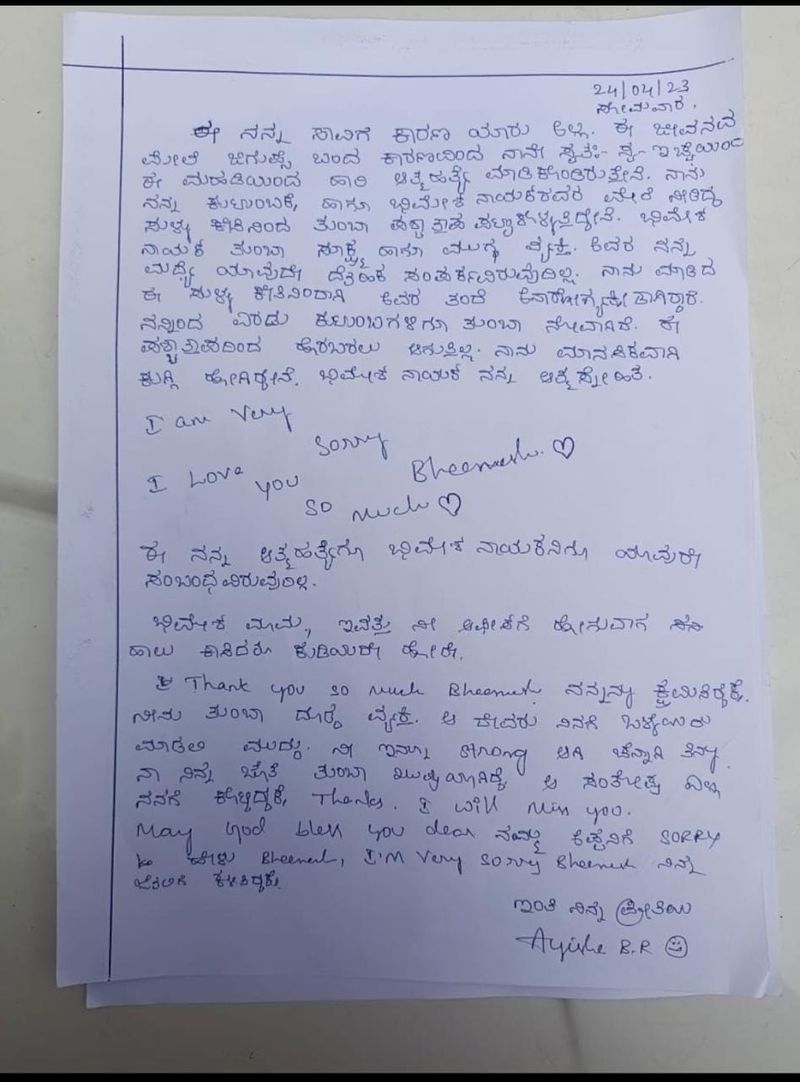 24/04/23
ಸೋಮವಾರ.
ಈ ನನ್ನ ಸಾವಿಗೆ ಕಾರಣ ಯಾರು ಅಲ್ಲ. ಈ ಜೀವನದ
ಮೇಲೆ ಜಿಗುಪ್ಸೆ ಬಂದ ಕಾರಣದಿಂದ ನಾನೇ ಸ್ವತಃ- ಸ್ವ-ಇಚ್ಛೆಯಿಂದ
ಈ ಮಹಡಿಯಿಂದ ಹಾರಿ ಆತ್ಮಹತ್ಯೆ ಮಾಡಿಕೊಂಡಿರುತ್ತೇನೆ. ನಾನು
ನನ್ನ ಕುಟುಂಬಕ್ಕೆ, ಹಾಗೂ ಭಿಮೇಶ ನಾಯಕರವರ ಮೇಲೆ ನೀಡಿದ್ದ
ಸುಳ್ಳು ಕೇಸಿನಿಂದ ತುಂಬಾ ಪಶ್ಚಾತ್ತಾಪ ಪಟ್ಟಾಕೊಳ್ಳುತ್ತಿದ್ದೇನೆ. ಭಿಮೇಶ
ನಾಯಕ ತುಂಬಾ ಸೂಕ್ಷ್ಮ ಹಾಗೂ ಮುಗ್ಧ ವ್ಯಕ್ತಿ. ಅವರ ನನ್ನ
ಮಧ್ಯೆ ಯಾವುದೇ ದೈಹಿಕ ಸಂಪರ್ಕವಿರುವುದಿಲ್ಲ. ನಾನು ಮಾಡಿದ
ಈ ಸುಳ್ಳು ಕೇಸಿನಿಂದಾಗಿ ಅವರ ತಂದೆ
ನನ್ನಿಂದ ಎರಡು ಕುಟುಂಬಗಳಿಗೂ ತುಂಬಾ ನೋವಾಗಿದೆ. ಈ
ಪಶ್ಚಾತ್ತಾಪದಿಂದ ಹೊರಬರಲು ಆಗುತ್ತಿಲ್ಲ. ನಾನು ಮಾನಸಿಕವಾಗಿ
ಕುಗ್ಗಿ ಹೋಗಿದ್ದೇನೆ. ಭಿಮೇಶ ನಾಯಕ ನನ್ನ ಆತ್ಮಸ್ನೇಹಿತ.
I am Very
Sorry
Bheemesh. ♡
I Love
you
so much ♡
ಈ ನನ್ನ ಆತ್ಮಹತ್ಯೆಗೂ ಭಿಮೇಶ ನಾಯಕನಿಗೂ ಯಾವುದೇ
ಸಂಬಂಧವಿರುವುದಿಲ್ಲ.
ಭಿಮೇಶ ಮಾಮ, ಇವತ್ತು ನೀ ಆಫೀಸ್‌ಗೆ ಹೋಗುವಾಗ
ಹಾಲು ಕಾಸಿದರೂ ಕುಡಿಯದೇ ಹೋದೆ.
Thank you so much Bheemesh. ನನ್ನನ್ನು ಕ್ಷಮಿಸಿದ್ದಕ್ಕೆ.
ನೀನು ತುಂಬಾ ದೊಡ್ಡ ವ್ಯಕ್ತಿ. ಆ ದೇವರು ನಿನಗೆ ಒಳ್ಳೆಯದು
ಮಾಡಲಿ ಮುದ್ದು. ನೀ ಇನ್ನೂ strong ಆಗಿ ಚೆನ್ನಾಗಿ ತಿನ್ನು.
ನಾ ನಿನ್ನ ಜೊತೆ ತುಂಬಾ ಖುಷಿಯಾಗಿದ್ದೆ ಆ ಸಂತೋಷ ಎಲ್ಲ
ನನಗೆ ಕೊಟ್ಟಿದ್ದಕ್ಕೆ, Thanks. I will Miss you.
May God bless you dear ನಮ್ಮ SORRY
ಹೇಳು Bheemesh, I'M Very Sorry Bheemesh ನಿನ್ನ
ಇಂತಿ ನಿನ್ನ ಪ್ರೀತಿಯ
Ayisha B.R ☺